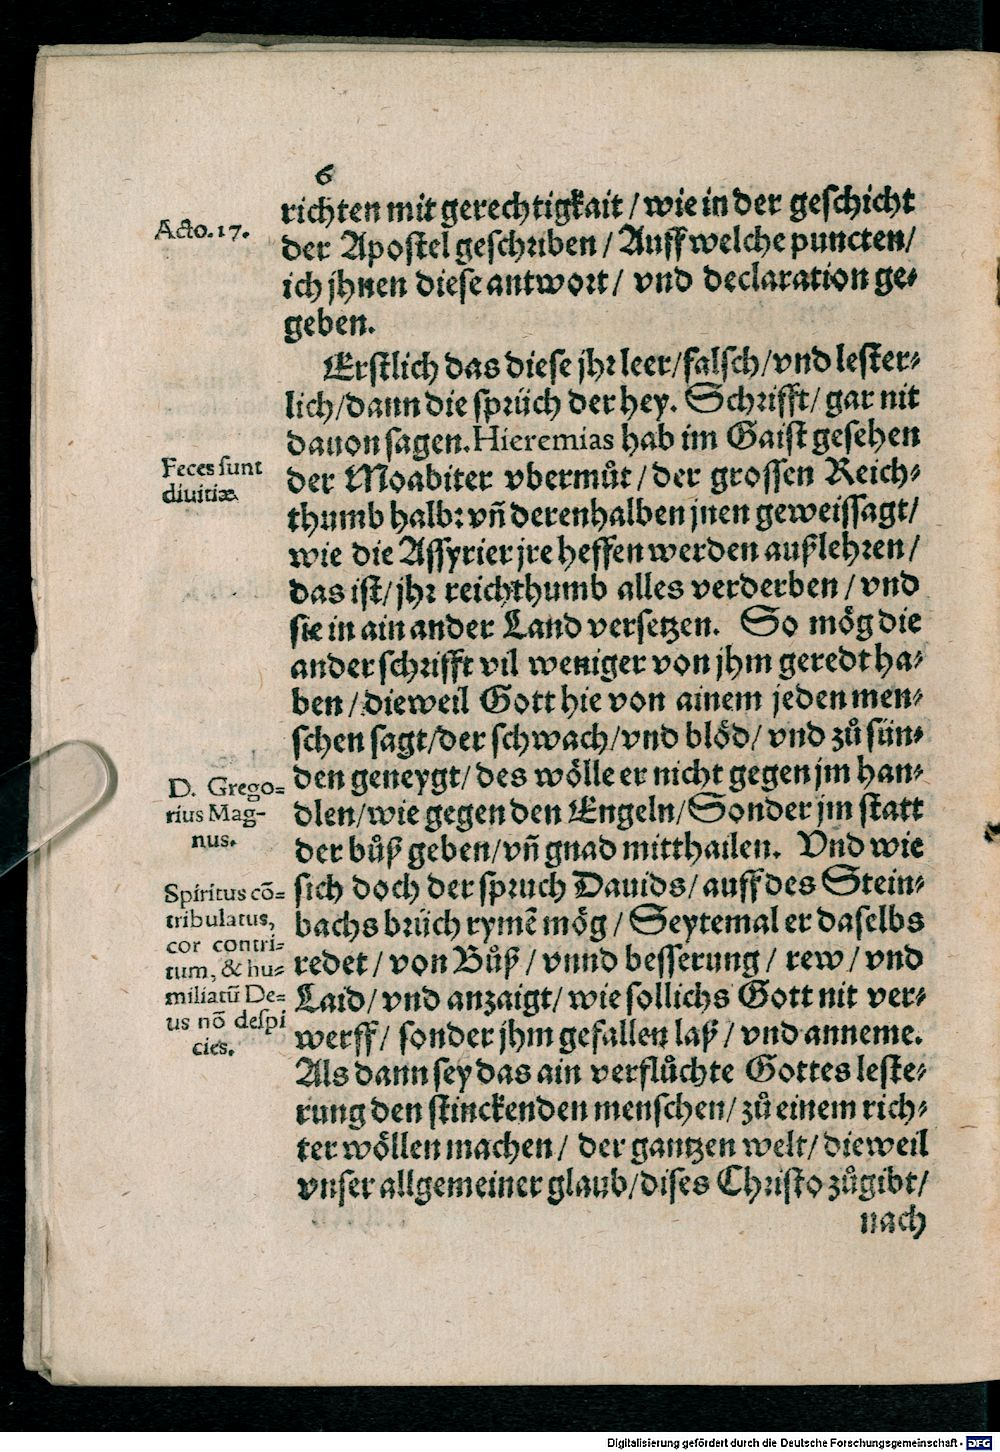 6
Acto. 17.
richten mit gerechtigkait / wie in der geschicht
der Apostel geschriben / Auff welche puncten /
ich jhnen diese antwort / vnd declaration ge-
geben.
Erstlich das diese jhr leer / falsch / vnd lester-
lich / dann die sprüch der hey. Schrifft / gar nit
dauon sagen. Hieremias hab im Gaist gesehen
Feces sunt
diuitiæ.
der Moabiter vbermůt / der grossen Reich-
thumb halb: vñ derenhalben jnen geweissagt /
wie die Assyrier jre heffen werden außlehren /
das ist / jhr reichthumb alles verderben / vnd
sie in ain ander Land versetzen. So mög die
ander schrifft vil weniger von jhm geredt ha-
ben / dieweil Gott hie von ainem jeden men-
schen sagt / der schwach / vnd blöd / vnd zů sün-
D. Grego-
rius Mag-
nus.
den geneygt / des wölle er nicht gegen jm han-
dlen / wie gegen den Engeln / Sonder jm statt
der bůß geben / vñ gnad mitthailen. Vnd wie
Spiritus cõ-
tribulatus,
cor contri-
tum, & hu-
miliatũ De-
us nõ despi
cies.
sich doch der spruch Dauids / auff des Stein-
bachs brüch rymẽ mög / Seytemal er daselbs
redet / von Bůß / vnnd besserung / rew / vnd
Laid / vnd anzaigt / wie sollichs Gott nit ver-
werff / sonder jhm gefallen laß / vnd anneme.
Als dann sey das ain verflůchte Gottes leste-
rung den stinckenden menschen / zů einem rich-
ter wöllen machen / der gantzen welt / dieweil
vnser allgemeiner glaub / dises Christo zůgibt /
nach
Digitalisierung gefördert durch die Deutsche Forschungsgemeinschaft - DFG